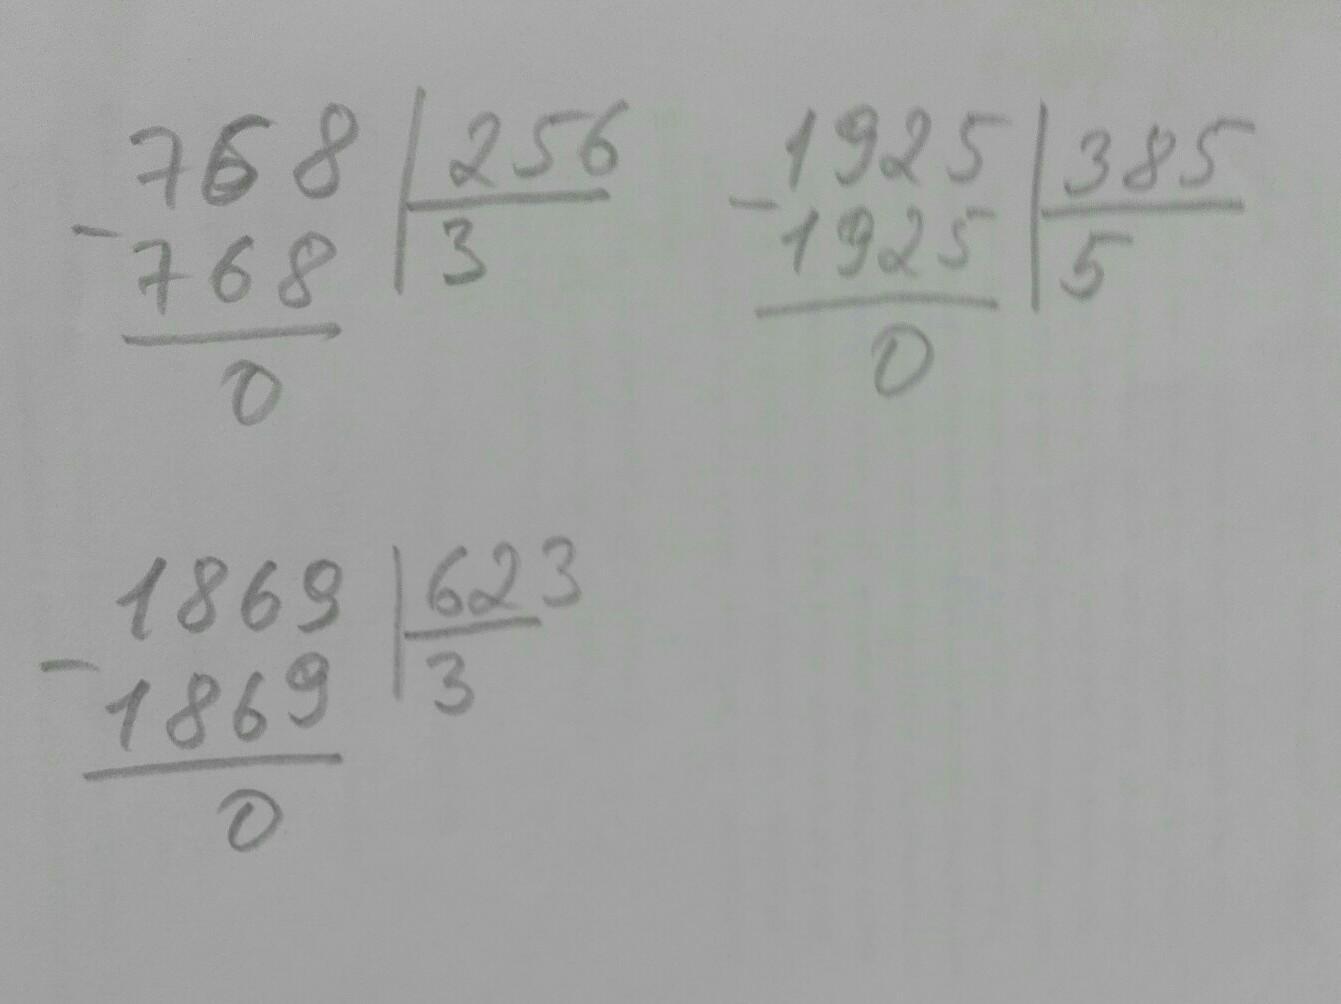 768 256
- 768 3
0
1925 385
- 1925 5
0
1869 623
- 1869 3
0